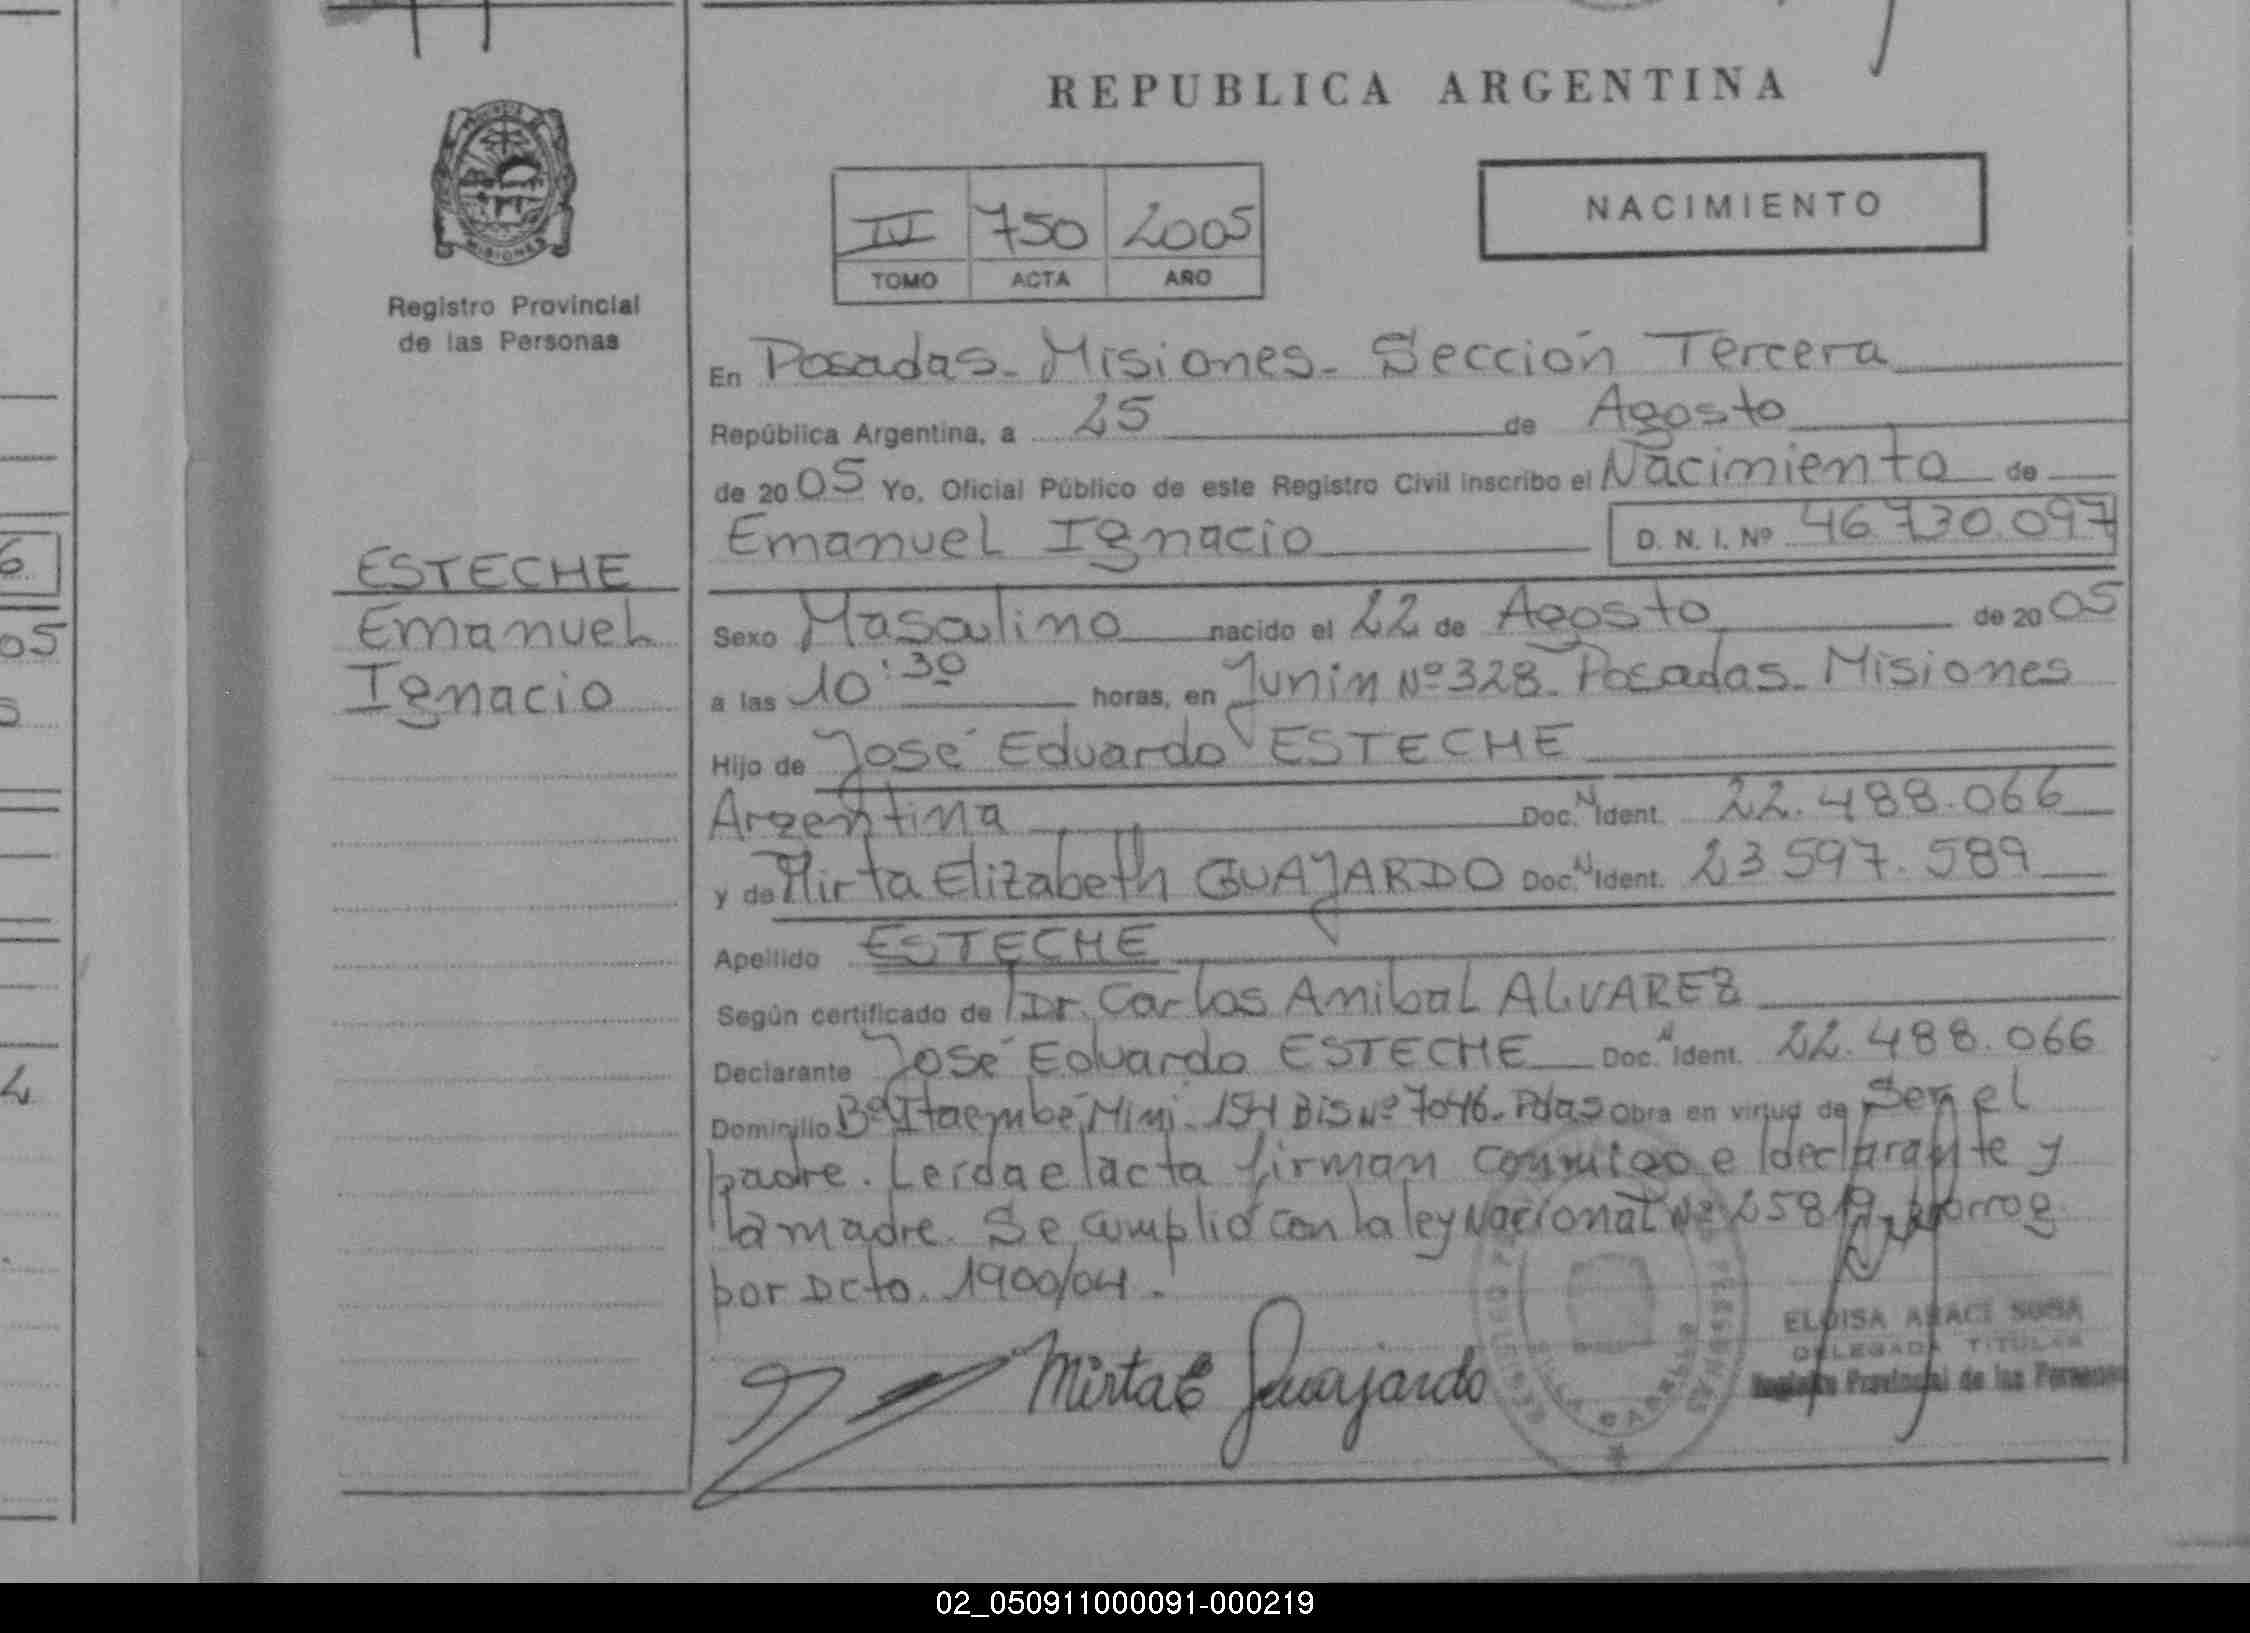 REPUBLICA ARGENTINA
MISIONES
Registro Provincial
de las Personas
750 2005
TOMO ACTA AÑO
NACIMIENTO
ESTECHE
Emanuel
Ignacio
En Posadas - Misiones - Sección Tercera
República Argentina, a 25 de Agosto
de 2005 Yo, Oficial Público de este Registro Civil inscribo el Nacimiento de
Emanuel Ignacio D. N. I. Nº 46.730.097
Sexo Masculino nacido el 22 de Agosto de 2005
a las 10:30 horas, en Junin Nº 328 - Posadas - Misiones
Hijo de José Eduardo ESTECHE
Argentina Doc. N Ident. 22.488.066
y de Mirta Elizabeth GUAJARDO Doc. N Ident. 23 597.589
Apellido ESTECHE
Según certificado de Dr. Carlos Anibal ALVAREZ
Declarante José Eduardo ESTECHE Doc. N Ident. 22.488.066
Domicilio Bº Itaembé Mini - 154 Bis Nº 7046 - Pdas Obra en virtud de Ser el
padre. Leida el acta firman conmigo el declarante y
la madre. Se cumplió con la ley Nacional Nº 25819 prorrog
por Dcto. 1900/04.
Mirta E Guajardo
ELOISA ARACI SOSA
DELEGADA TITULAR
Registro Provincial de las Personas
6
05
02_050911000091-000219